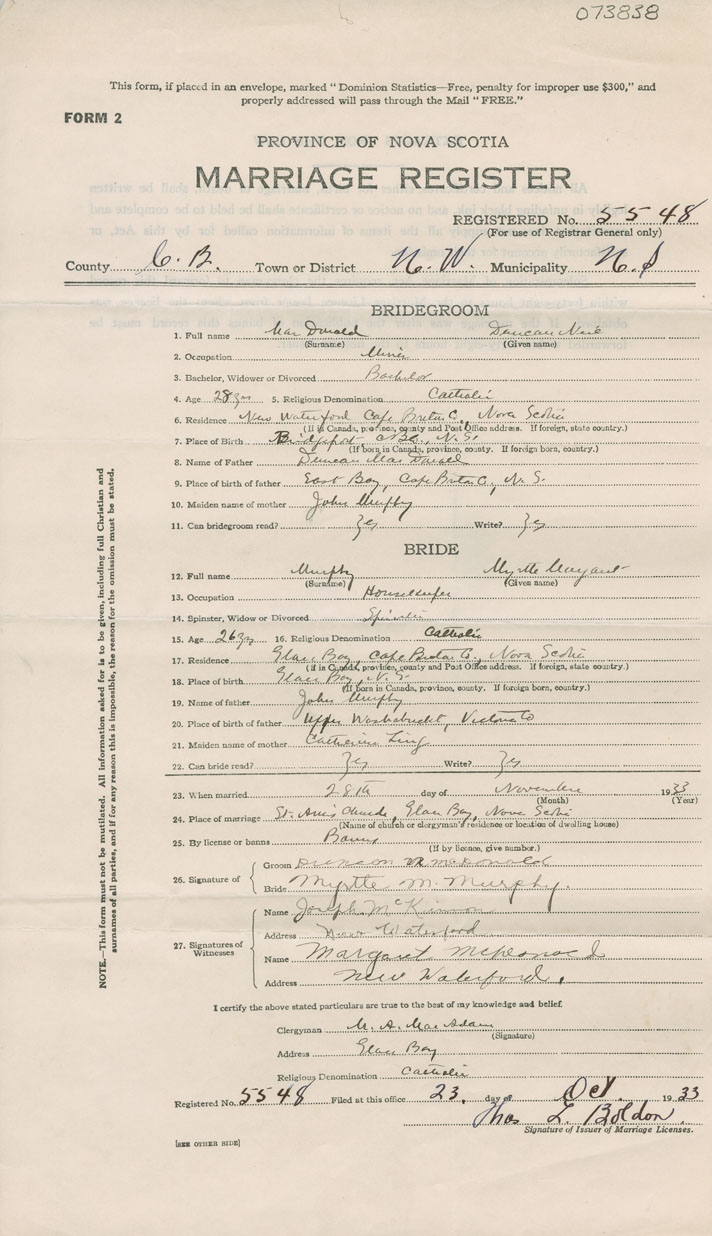 073838
This form, if placed in an envelope, marked "Dominion Statistics—Free, penalty for improper use $300," and
properly addressed will pass through the Mail "FREE."
FORM 2
PROVINCE OF NOVA SCOTIA
MARRIAGE REGISTER
REGISTERED No. 5548
(For use of Registrar General only)
County C. B. Town or District N. W. Municipality N. S
BRIDEGROOM
1. Full name MacDonald Duncan Neil
(Surname) (Given name)
2. Occupation Miner
3. Bachelor, Widower or Divorced Bachelor
4. Age 28 yrs 5. Religious Denomination Catholic
6. Residence New Waterford Cape Breton C., Nova Scotia
(If in Canada, province, county and Post Office address. If foreign, state country.)
7. Place of Birth Bridgeport C.B., N.S.
(If born in Canada, province, county. If foreign born, country.)
8. Name of Father Duncan MacDonald
9. Place of birth of father East Bay, Cape Breton C., N. S.
10. Maiden name of mother John Murphy
11. Can bridegroom read? Yes Write? Yes
BRIDE
12. Full name Murphy Myrtle Margaret
(Surname) (Given name)
13. Occupation Housekeeper
14. Spinster, Widow or Divorced Spinster
15. Age 26 yrs 16. Religious Denomination Catholic
17. Residence Glace Bay, Cape Breton Co., Nova Scotia
(If in Canada, province, county and Post Office address. If foreign, state country.)
18. Place of birth Glace Bay, N. S
(If born in Canada, province, county. If foreign born, country.)
19. Name of father John Murphy
20. Place of birth of father Upper Washabuckt, Victoria Co
21. Maiden name of mother Catherine
22. Can bride read? Yes Write? Yes
23. When married 28th day of November 1933
(Month) (Year)
24. Place of marriage St. Ann's Church, Glace Bay, Nova Scotia
(Name of church or clergyman's residence or location of dwelling house)
25. By license or banns Banns
(If by licence, give number.)
26. Signature of
Groom Duncan N McDonald
Bride Myrtle M. Murphy.
27. Signatures of Witnesses
Name Joseph McKinnon
Address New Waterford
Name Margaret McDonald
Address New Waterford.
I certify the above stated particulars are true to the best of my knowledge and belief.
Clergyman M. A. MacAdam
(Signature)
Address Glace Bay
Religious Denomination Catholic
Registered No. 5548 Filed at this office 23. day of Oct. 1933
Thos L. Boldon
Signature of Issuer of Marriage Licenses.
[SEE OTHER SIDE]
NOTE.—This form must not be mutilated. All information asked for is to be given, including full Christian and
surnames of all parties, and if for any reason this is impossible, the reason for the omission must be stated.